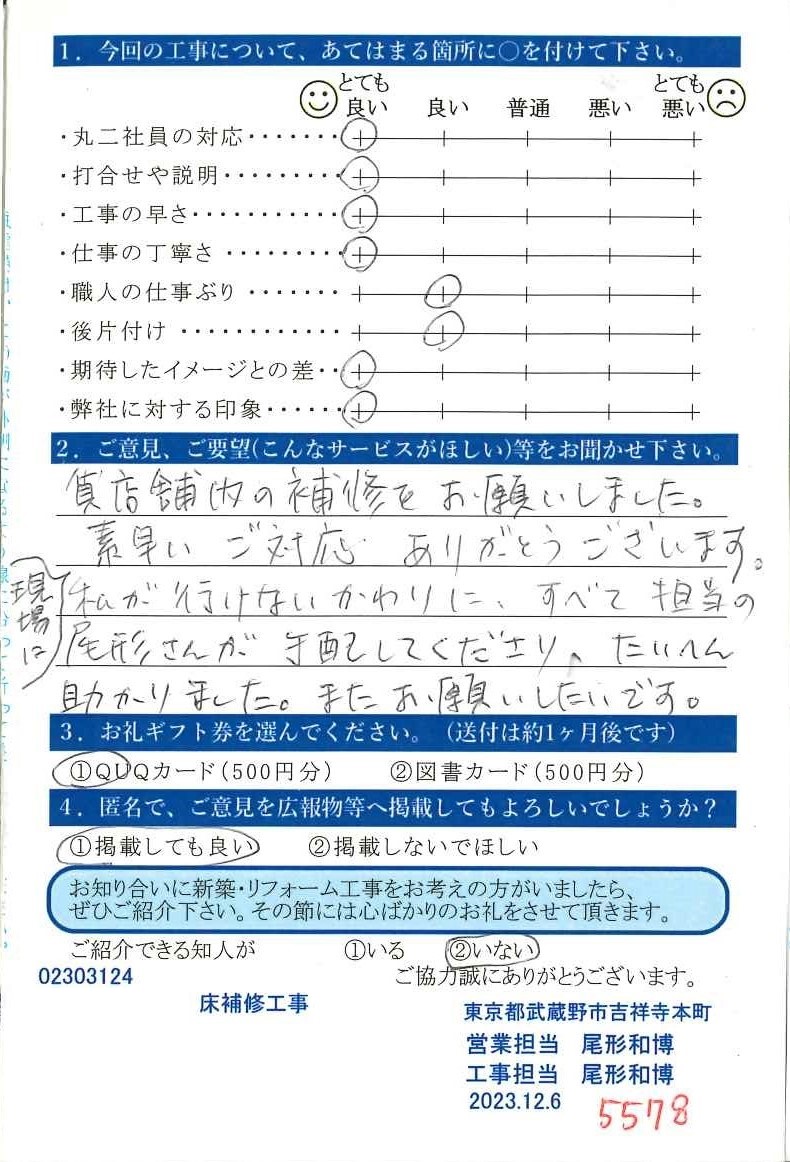 1. 今回の工事について、あてはまる箇所に○を付けて下さい。
とても良い 良い 普通 悪い とても悪い
・丸二社員の対応・・・・・・・
・打合せや説明・・・・・・・・・
・工事の早さ・・・・・・・・・・・
・仕事の丁寧さ・・・・・・・・・
・職人の仕事ぶり・・・・・・・
・後片付け・・・・・・・・・・・・
・期待したイメージとの差・・
・弊社に対する印象・・・・・・
2. ご意見、ご要望(こんなサービスがほしい)等をお聞かせ下さい。
貸店舗内の補修をお願いしました。
素早いご対応 ありがとうございます。
現場に
私が行けないかわりに、すべて担当の
尾形さんが手配してくださり、たいへん
助かりました。またお願いしたいです。
3. お礼ギフト券を選んでください。(送付は約1ヶ月後です)
①QUQカード(500円分) ②図書カード(500円分)
4. 匿名で、ご意見を広報物等へ掲載してもよろしいでしょうか?
①掲載しても良い ②掲載しないでほしい
お知り合いに新築・リフォーム工事をお考えの方がいましたら、
ぜひご紹介下さい。その節には心ばかりのお礼をさせて頂きます。
ご紹介できる知人が ①いる ②いない
02303124 ご協力誠にありがとうございます。
床補修工事 東京都武蔵野市吉祥寺本町
営業担当 尾形和博
工事担当 尾形和博
2023.12.6 5578